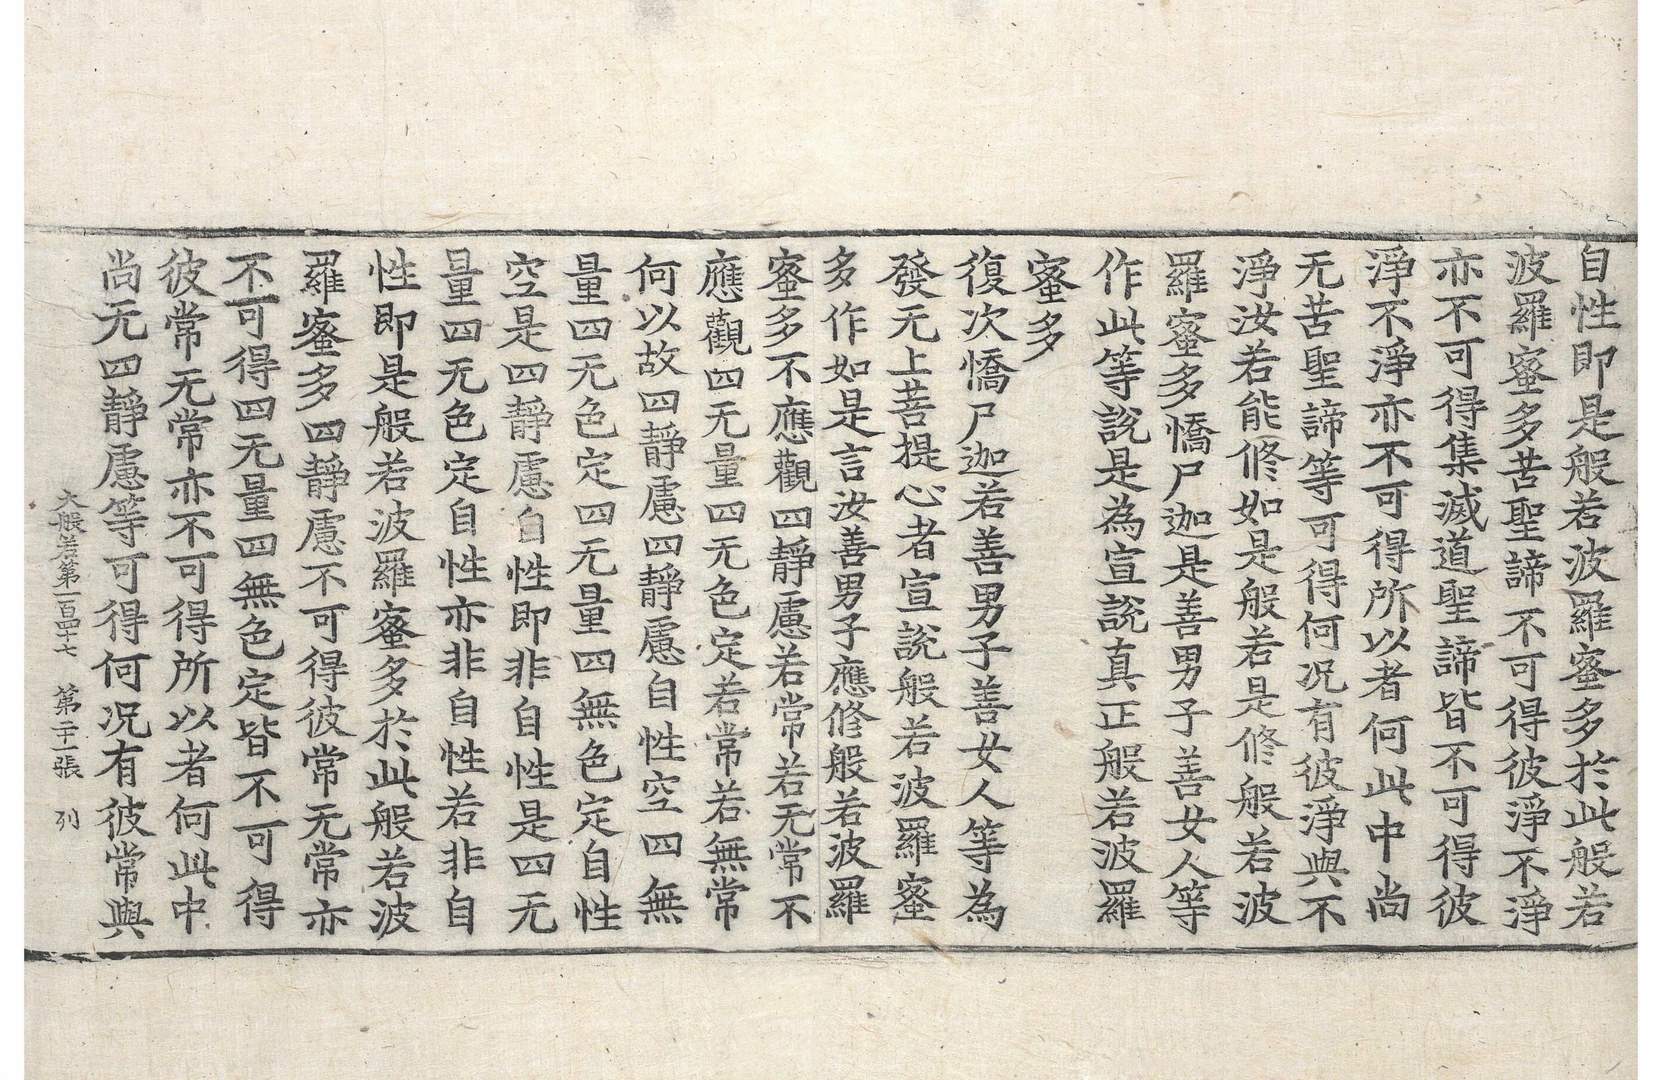 自性即是般若波羅蜜多於此般若
波羅蜜多苦聖諦不可得彼淨不淨
亦不可得集滅道聖諦皆不可得彼
淨不淨亦不可得所以者何此中尚
无苦聖諦等可得何况有彼淨與不
淨汝若能修如是般若是修般若波
羅蜜多憍尸迦是善男子善女人等
作此等說是為宣說真正般若波羅
蜜多
復次憍尸迦若善男子善女人等為
發无上菩提心者宣說般若波羅蜜
多作如是言汝善男子應修般若波羅
蜜多不應觀四靜慮若常若无常不
應觀四无量四无色定若常若無常
何以故四靜慮四靜慮自性空四無
量四无色定四无量四無色定自性
空是四靜慮自性即非自性是四无
量四无色定自性亦非自性若非自
性即是般若波羅蜜多於此般若波
羅蜜多四靜慮不可得彼常无常亦
不可得四无量四無色定皆不可得
彼常无常亦不可得所以者何此中
尚无四靜慮等可得何况有彼常與
大般若第一百四十七 第二十一張 列